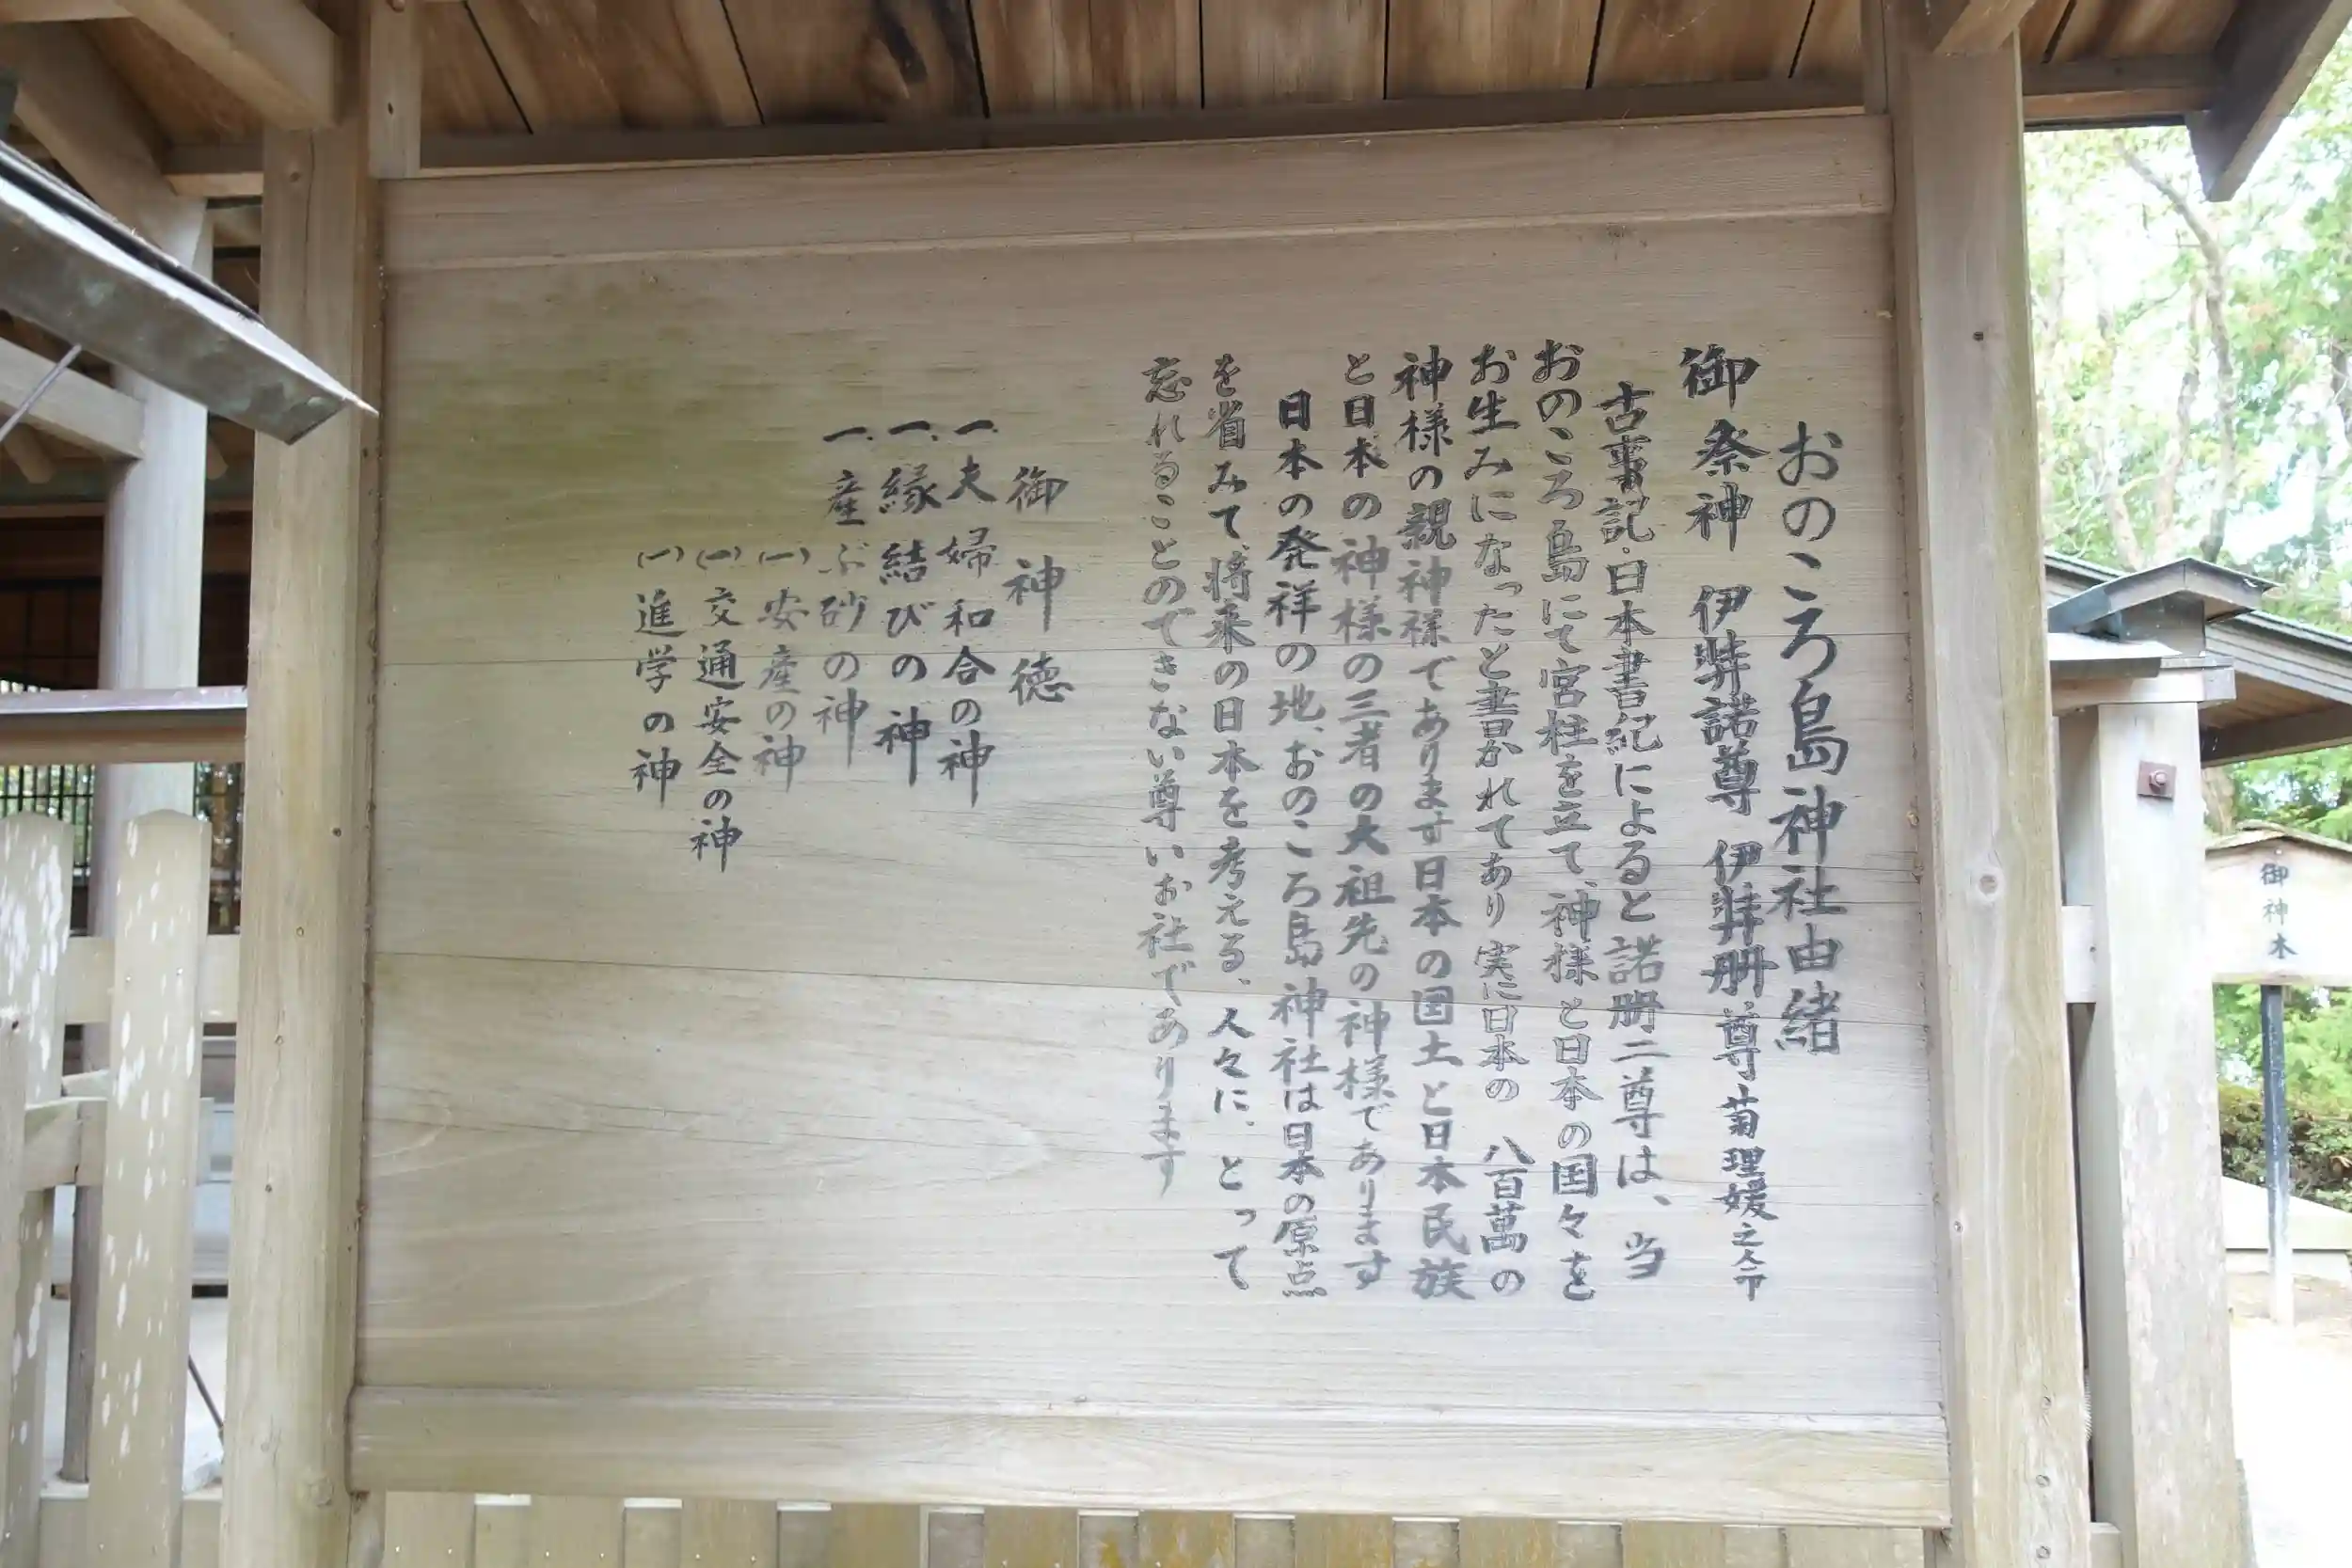 おのころ島神社由緒
御祭神 伊弉諾尊 伊弉冊尊 菊理媛之命
古事記・日本書紀によると諾冊二尊は、当
おのころ島にて宮柱を立て、神様と日本の国々を
お生みになったと書かれてあり実に日本の 八百萬の
神様の親神様であります日本の国土と日本民族
と日本の神様の三者の大祖先の神様であります
日本の発祥の地、おのころ島神社は日本の原点
を省みて、将来の日本を考える、人々に、とって
忘れることのできない尊いお社であります
御神徳
一、夫婦和合の神
一、縁結びの神
一、産ぶ砂の神
(一)安産の神
(一)交通安全の神
(一)進学の神
御神木